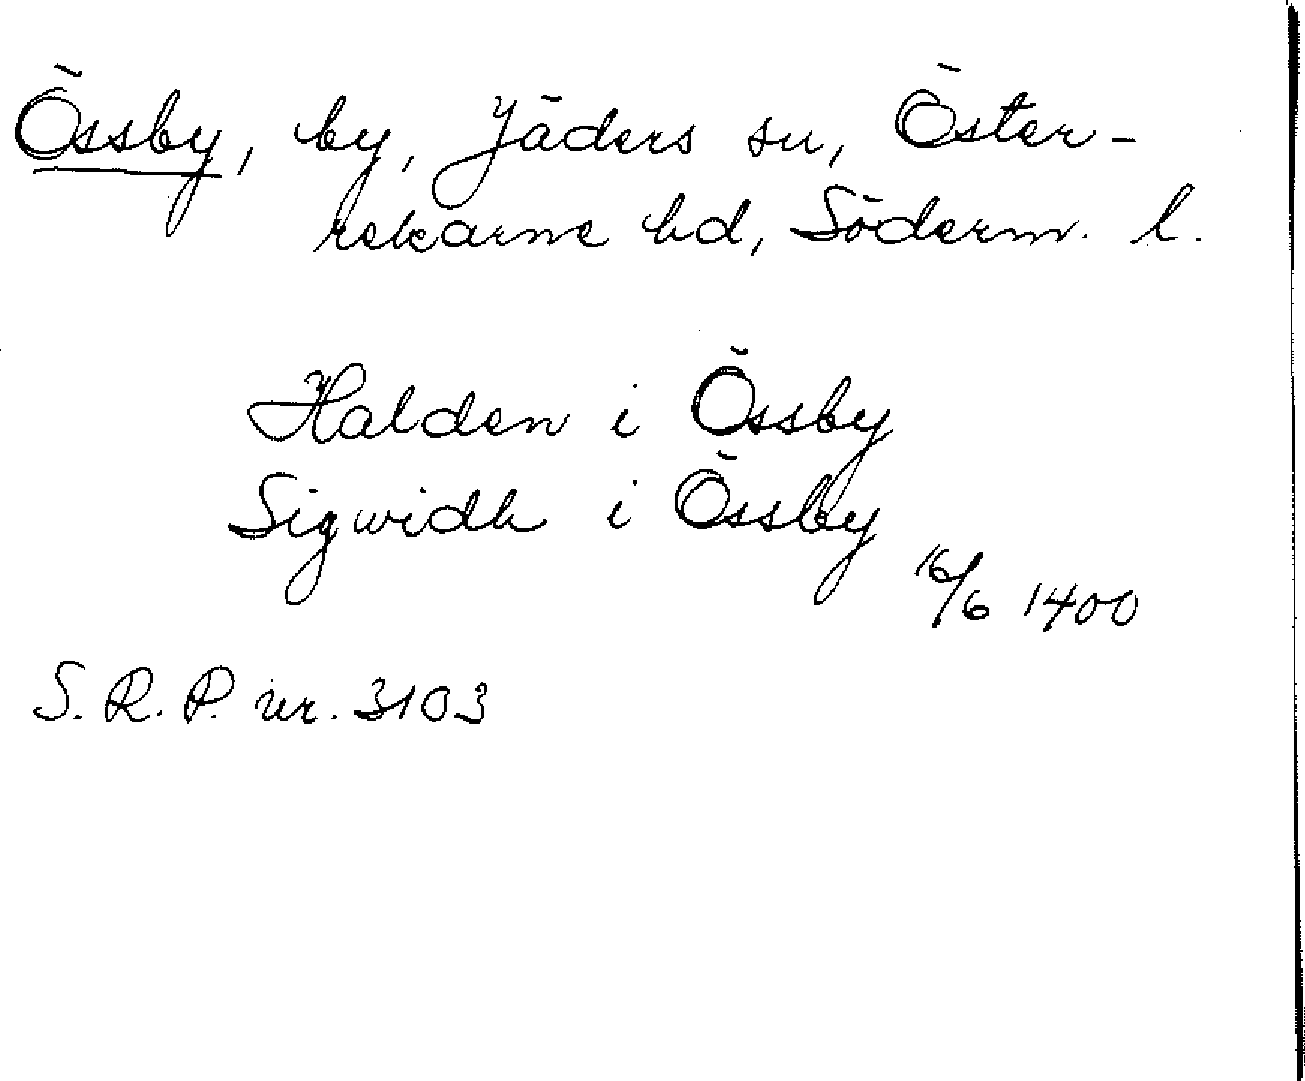 Össby, by, Jäders sn, Öster-
rekarne hd, Söderm. l.
Halden i Össby
Sigwidh i Össby
16/6 1400
S. R. P. nr. 3103